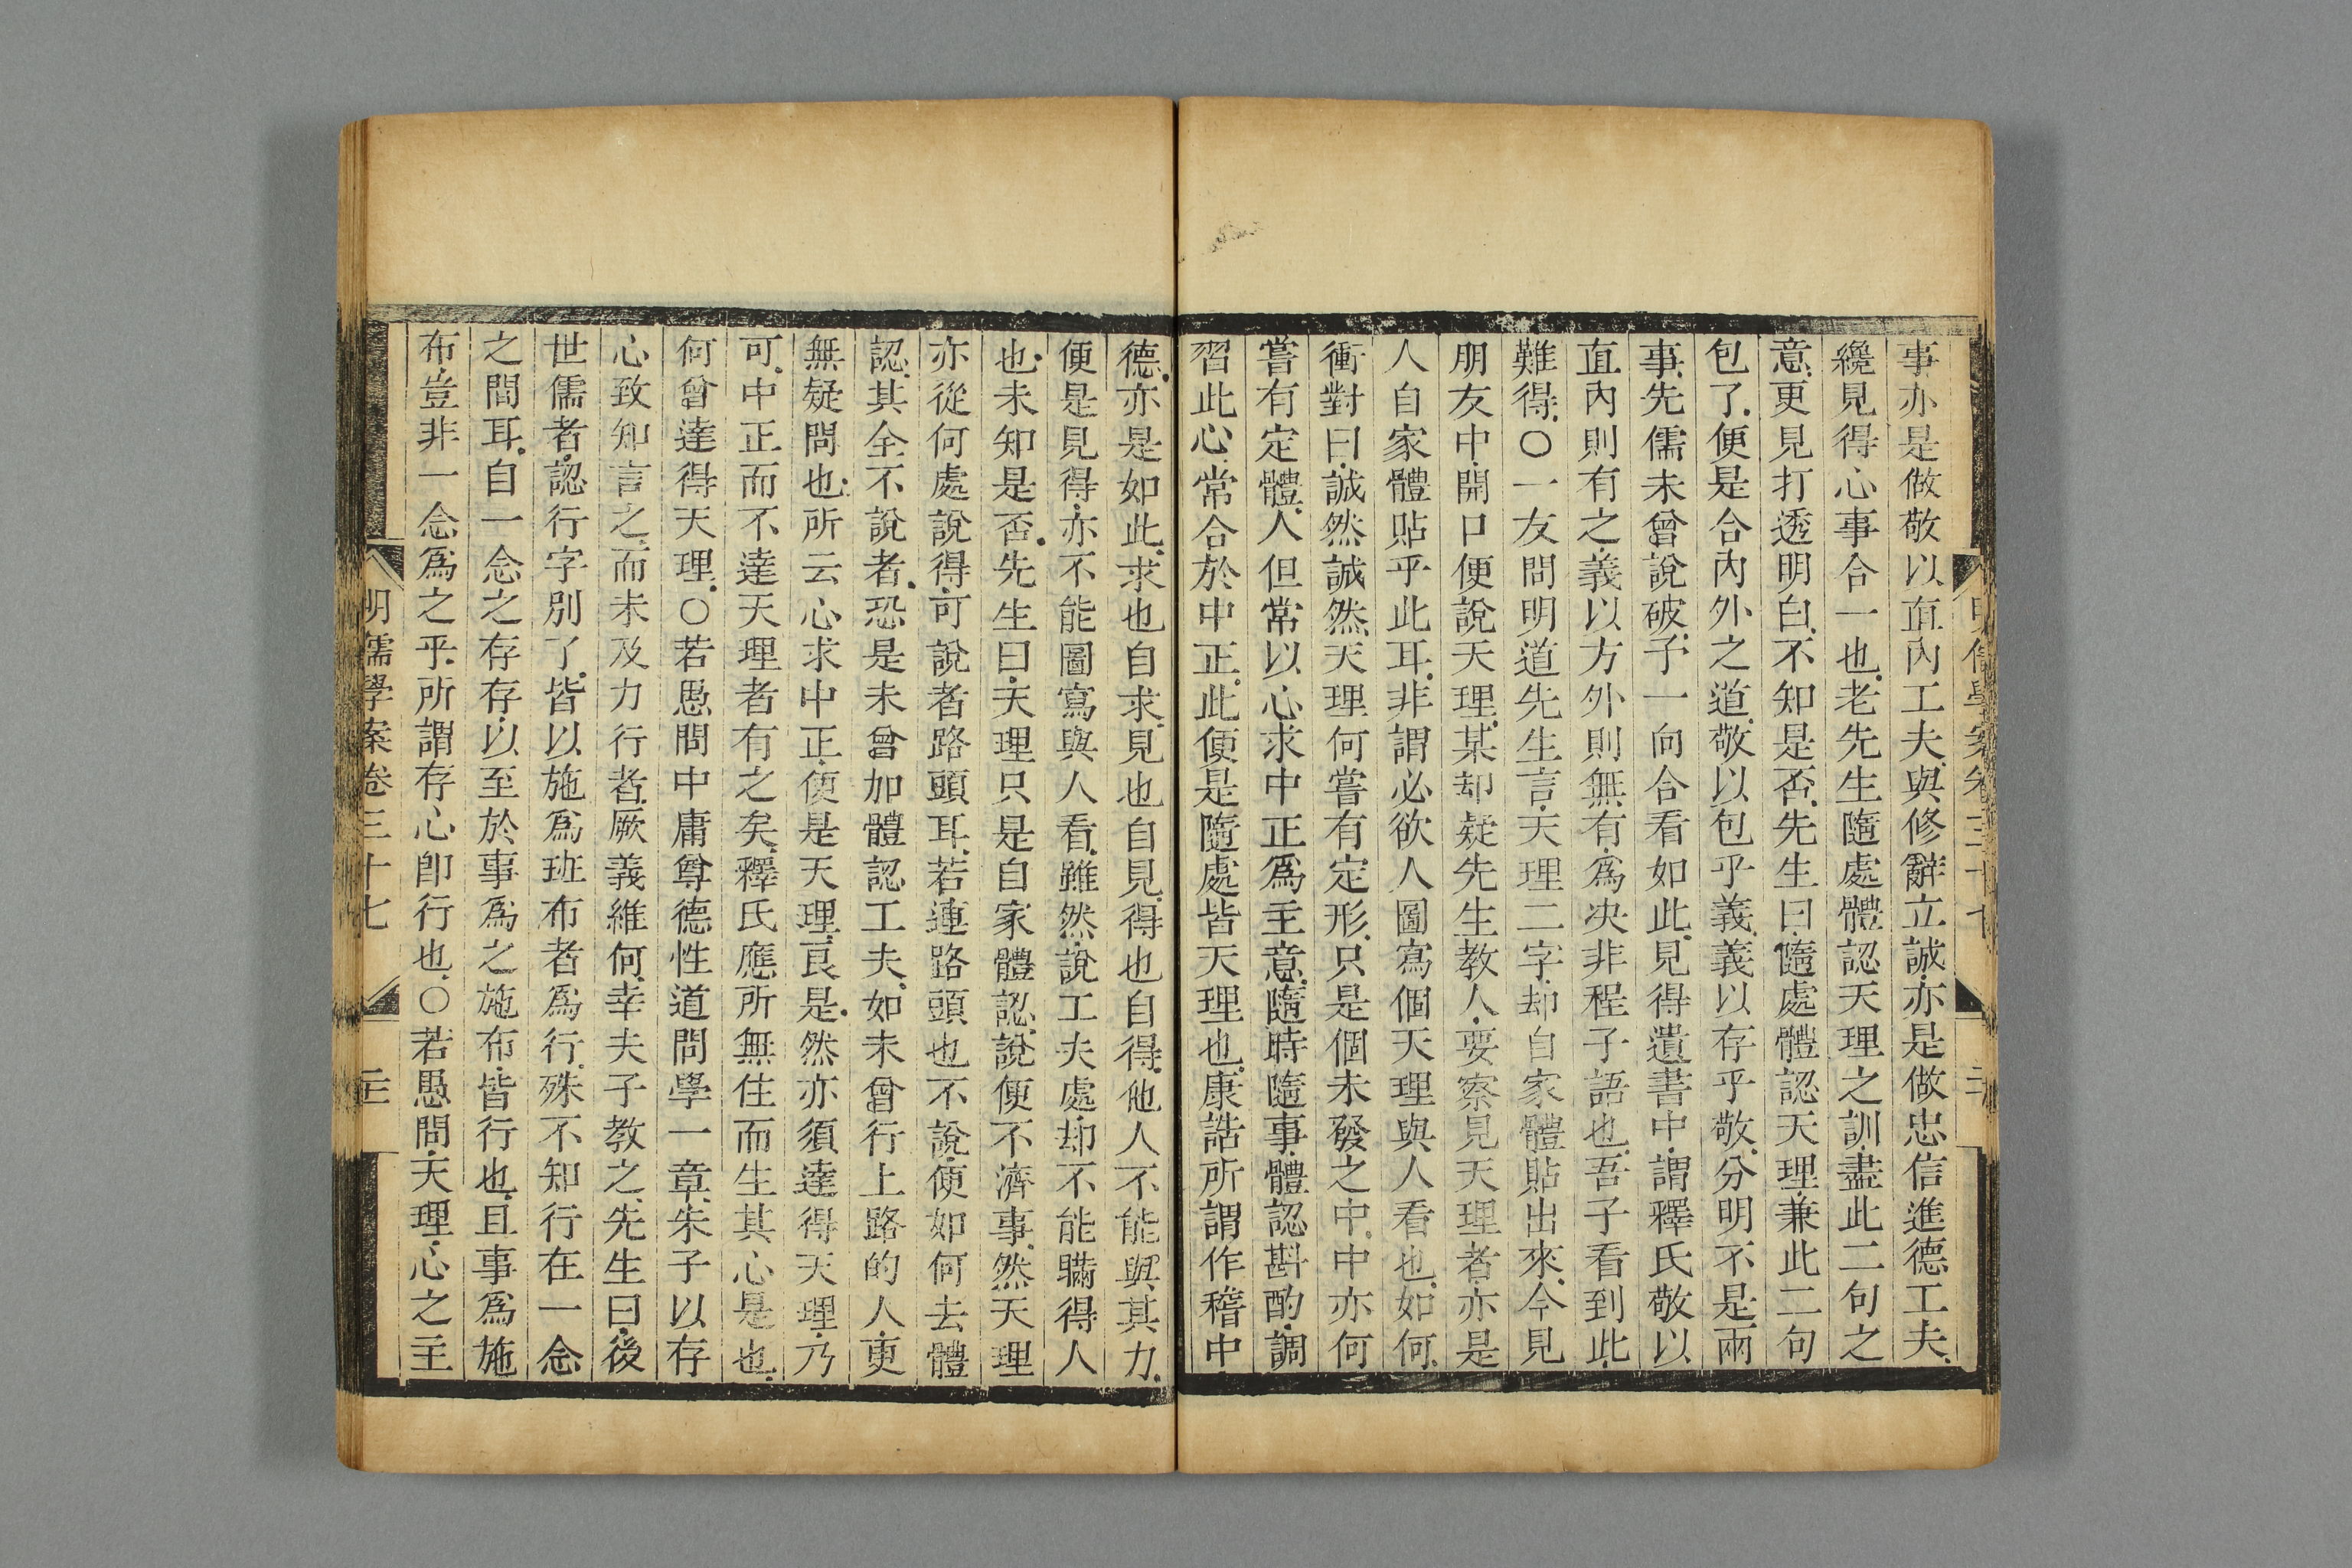 事亦是做敬以直內工夫與修辭立誠亦是做忠信進德工夫
纔見得心事合一也老先生隨處體認天理之訓盡此二句之
意更見打透明白不知是否先生曰隨處體認天理兼此二句
包了便是合內外之道敬以包乎義義以存乎敬分明不是兩
事先儒未曾說破予一向合看如此見得遺書中謂釋氏敬以
直內則有之義以方外則無有爲决非程子語也吾子看到此
難得○一友問明道先生言天理二字却自家體貼出來今見
朋友中開口便說天理某却疑先生教人要察見天理者亦是
人自家體貼乎此耳非謂必欲人圖寫個天理與人看也如何
衝對曰誠然誠然天理何嘗有定形只是個未發之中中亦何
嘗有定體人但常以心求中正爲主意隨時隨事體認斟酌調
習此心常合於中正此便是隨處皆天理也康誥所謂作稽中
德亦是如此求也自求見也自見得也自得他人不能與其力
便是見得亦不能圖寫與人看雖然說工夫處却不能瞞得人
也未知是否先生曰天理只是自家體認說便不濟事然天理
亦從何處說得可說者路頭耳若連路頭也不說便如何去體
認其全不說者恐是未曾加體認工夫如未曾行上路的人更
無疑問也所云心求中正便是天理良是然亦須達得天理乃
可中正而不達天理者有之矣釋氏應所無住而生其心是也
何曾達得天理○若愚問中庸尊德性道問學一章朱子以存
心致知言之而未及力行者厥義維何幸夫子教之先生曰後
世儒者認行字別了皆以施爲班布者爲行殊不知行在一念
之間耳自一念之存存以至於事爲之施布皆行也且事爲施
布豈非一念爲之乎所謂存心卽行也○若愚問天理心之主
明儒學案卷三十七